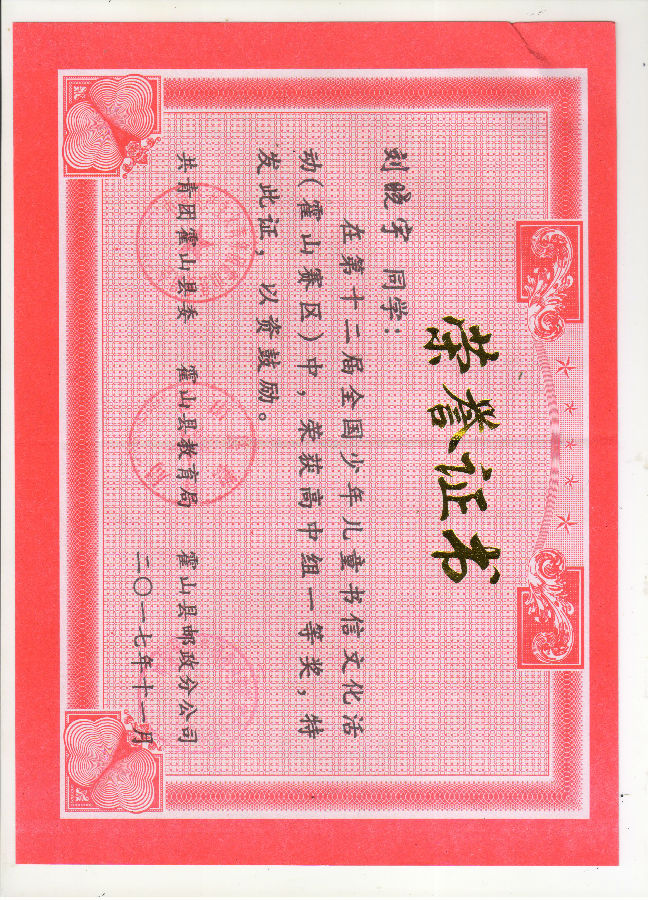 荣誉证书
刘晓宇同学：
在第十二届全国少年儿童书信文化活
动(霍山赛区)中，荣获高中组一等奖，特
发此证，以资鼓励。
共青团霍山县委 霍山县教育局 霍山县邮政分公司
二〇一七年十一月